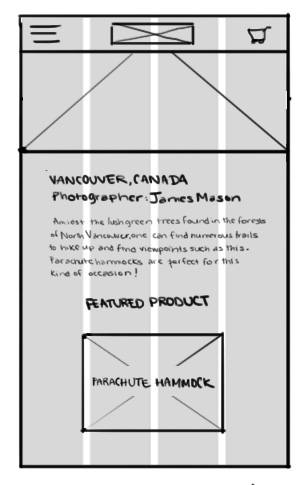 VANCOUVER, CANADA
Photographer: James Mason
Amidst the lush green trees found in the forests
of North Vancouver, one can find numerous trails
to hike up and find viewpoints such as this.
Parachute hammocks are perfect for this
kind of occasion!
FEATURED PRODUCT
PARACHUTE HAMMOCK